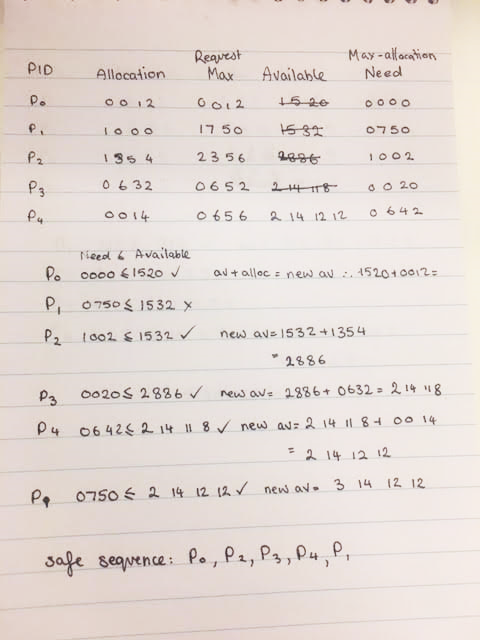 Request Max-allocation
PID Allocation Max Available Need
P0 0 0 1 2 0 0 1 2 1 5 2 0 0 0 0 0
P1 1 0 0 0 1 7 5 0 1 5 3 2 0 7 5 0
P2 1 3 5 4 2 3 5 6 2 8 8 6 1 0 0 2
P3 0 6 3 2 0 6 5 2 2 14 11 8 0 0 2 0
P4 0 0 1 4 0 6 5 6 2 14 12 12 0 6 4 2
Need ≤ Available
P0 0000 ≤ 1520 ✓ av + alloc = new av ∴ 1520 + 0012 =
P1 0750 ≤ 1532 ×
P2 1002 ≤ 1532 ✓ new av = 1532 + 1354
= 2886
P3 0020 ≤ 2886 ✓ new av = 2886 + 0632 = 2 14 11 8
P4 0642 ≤ 2 14 11 8 ✓ new av = 2 14 11 8 + 00 14
= 2 14 12 12
P1 0750 ≤ 2 14 12 12 ✓ new av = 3 14 12 12
safe sequence: P0, P2, P3, P4, P1